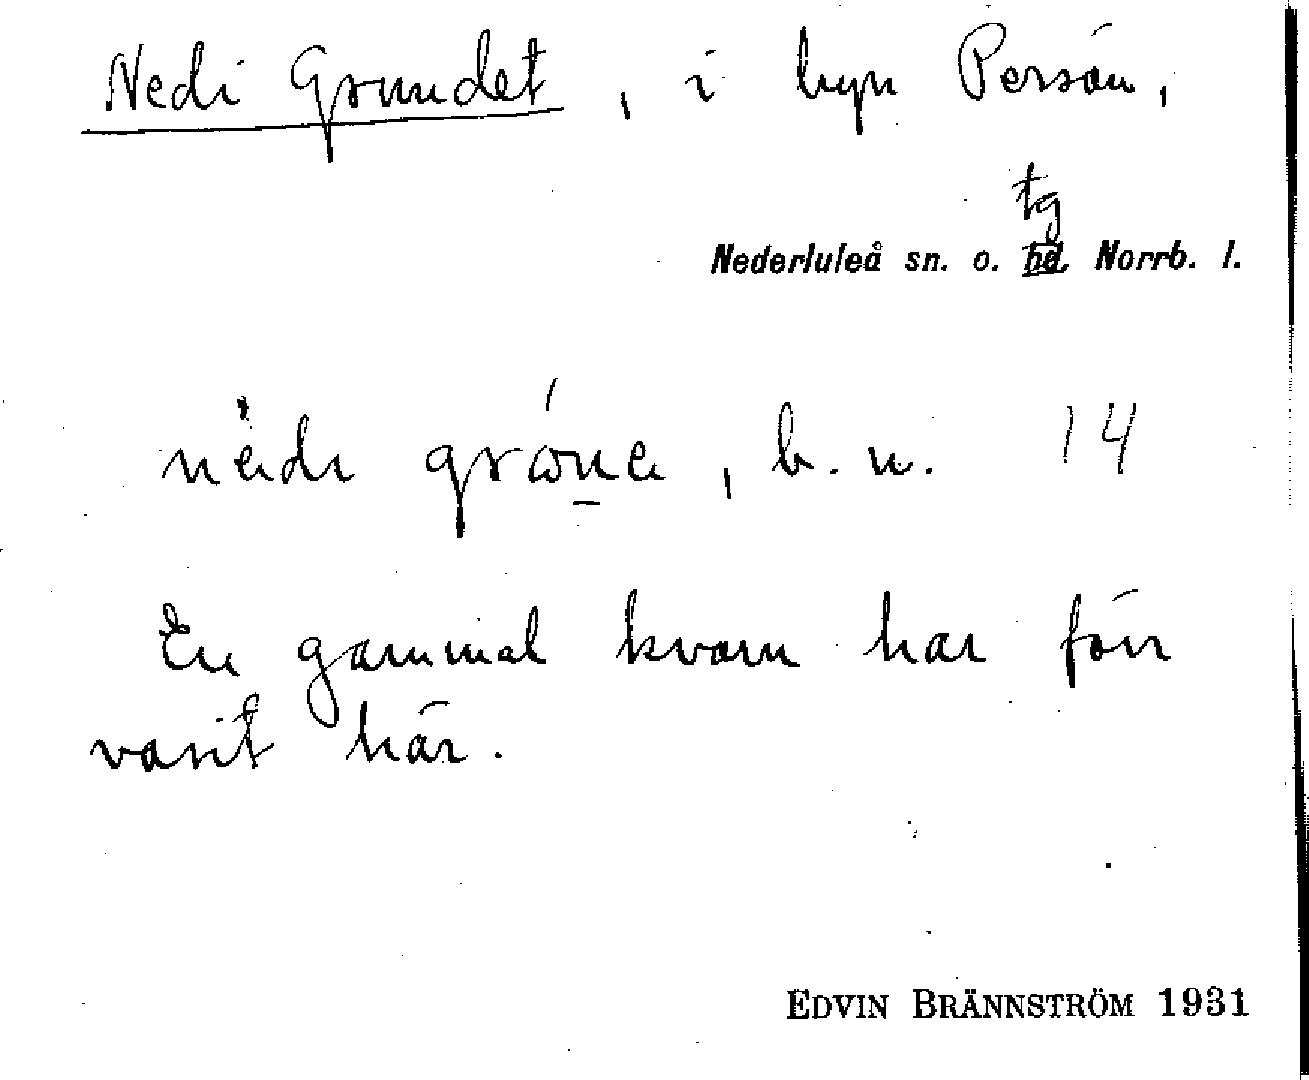 Nedi Grundet, i byn Persön,
tg
Nederluleå sn. o. hd. Norrb. l.
b. n. 14
En gammal kvarn har förr
varit här.
EDVIN BRÄNNSTRÖM 1931